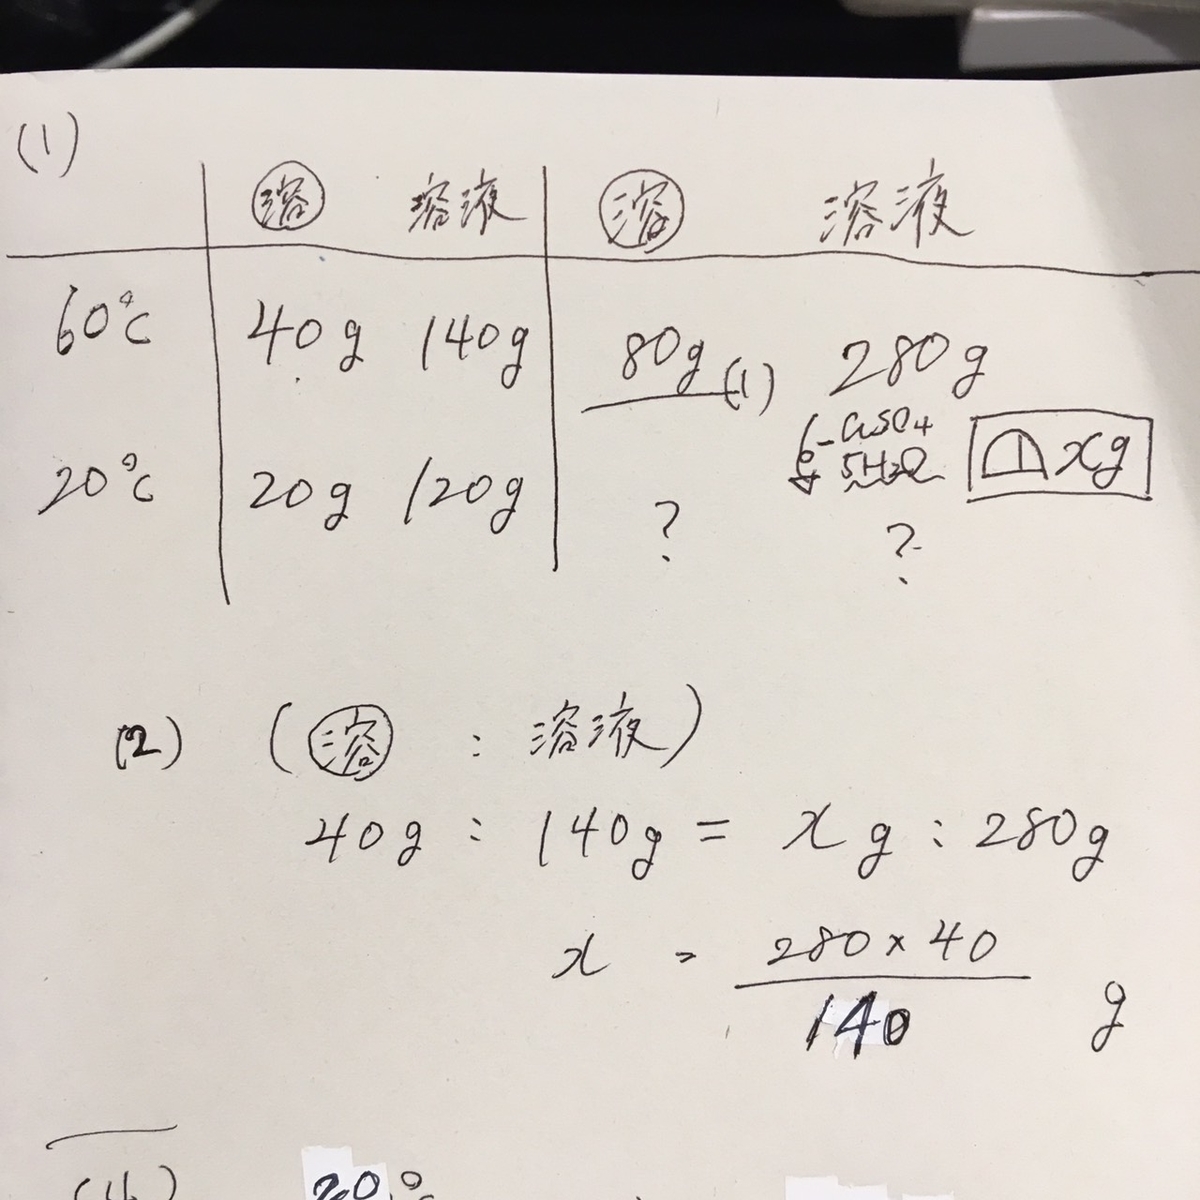 (1)
溶 溶液 溶 溶液
60°C 40g 140g 80g (1) 280g
CuSO4
5H2O xg
20°C 20g 120g ? ?
(2) (溶 : 溶液)
40g : 140g = xg : 280g
x = 280×40
140 g
(4) 20°